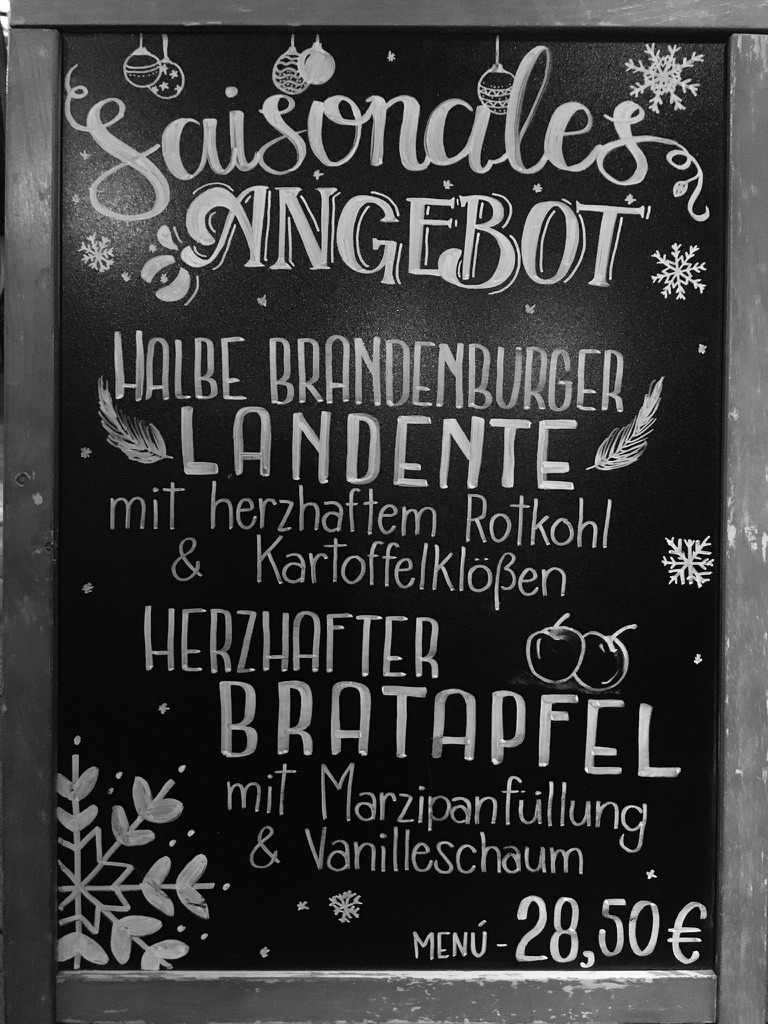 Saisonales
ANGEBOT
HALBE BRANDENBURGER
LANDENTE
mit herzhaftem Rotkohl
& Kartoffelklößen
HERZHAFTER
BRATAPFEL
mit Marzipanfüllung
& Vanilleschaum
MENÚ - 28,50 €